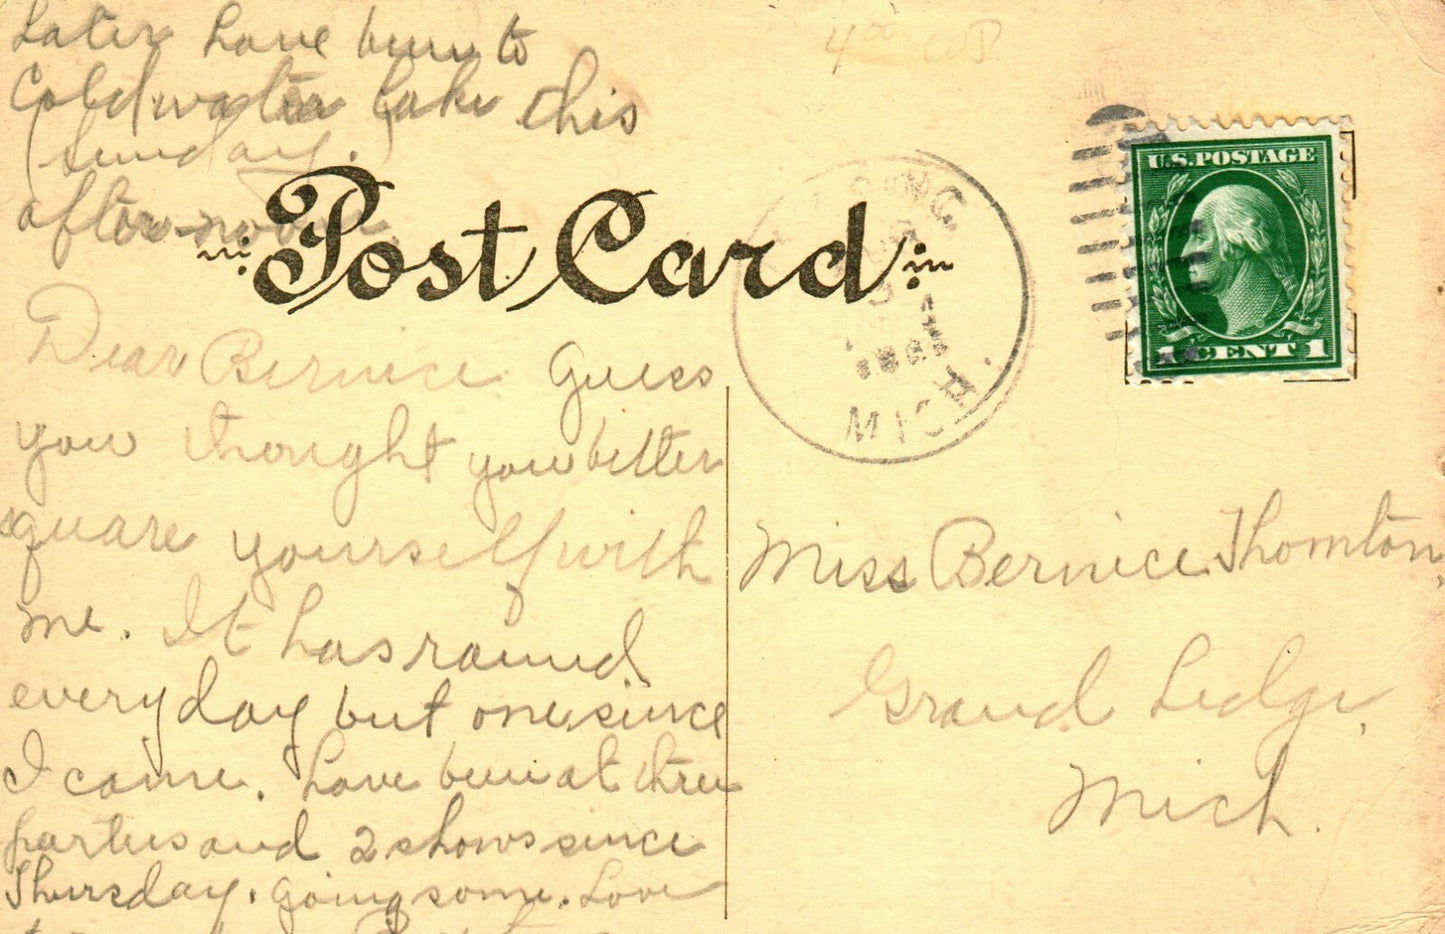 Later have been to
Coldwater Lake this
(Sunday.)
afternoon.
4.00 WB
U.S. POSTAGE
1 CENT 1
Post Card
MICH.
Dear Bernice. Guess
you thought you better
square yourself with
me. It has rained
every day but one since
I came. Have been at three
parties and 2 shows since
Thursday. Going some. Love
Miss Bernice Thornton,
Grand Ledge,
Mich.